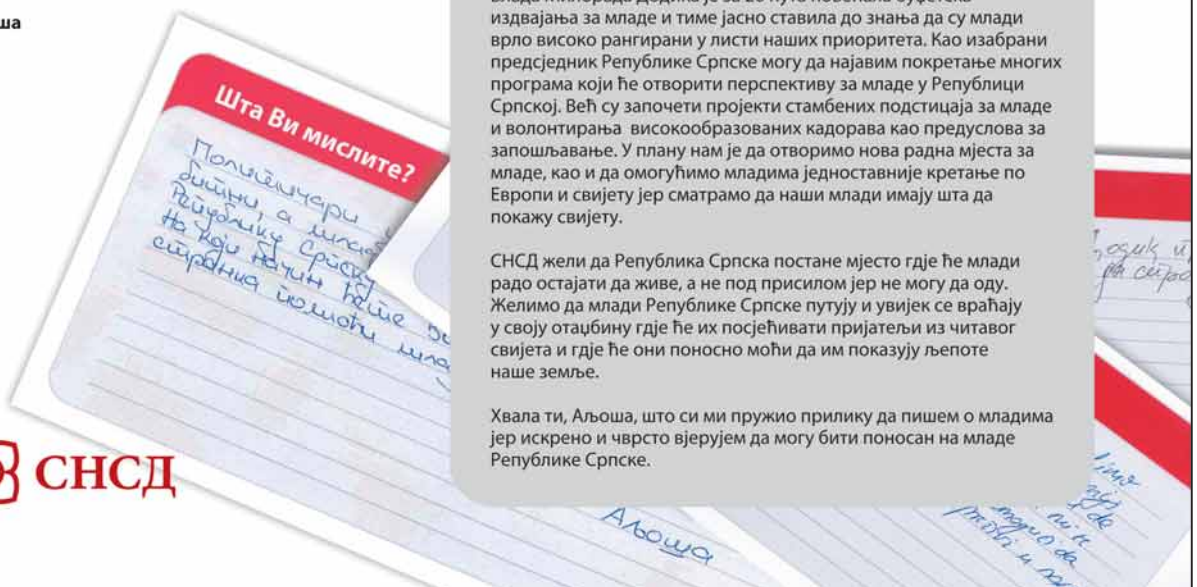 ша
издвајања за младе и тиме јасно ставила до знања да су млади
врло високо рангирани у листи наших приоритета. Као изабрани
предсједник Републике Српске могу да најавим покретање многих
програма који ће отворити перспективу за младе у Републици
Српској. Већ су започети пројекти стамбених подстицаја за младе
и волонтирања високообразованих кадорава као предуслова за
запошљавање. У плану нам је да отворимо нова радна мјеста за
младе, као и да омогућимо младима једноставније кретање по
Европи и свијету јер сматрамо да наши млади имају шта да
покажу свијету.
СНСД жели да Република Српска постане мјесто гдје ће млади
радо остајати да живе, а не под присилом јер не могу да оду.
Желимо да млади Републике Српске путују и увијек се враћају
у своју отаџбину гдје ће их посјећивати пријатељи из читавог
свијета и гдје ће они поносно моћи да им показују љепоте
наше земље.
Хвала ти, Аљоша, што си ми пружио прилику да пишем о младима
јер искрено и чврсто вјерујем да могу бити поносан на младе
Републике Српске.
Шта Ви мислите?
Политичари
битни, а
Републику Српску
На који начин ћете
странка помоћи
Аљоша
СНСД